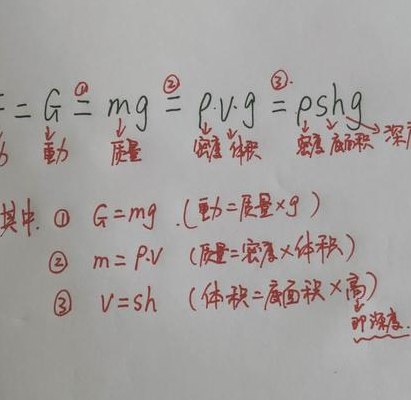 ① ② ③
= G = mg = ρ.v.g = ρshg
力 重力 质量 密度 体积 密度 底面积 深度
其中. ① G = mg (重力=质量×g)
② m = ρ.v (质量=密度×体积)
③ v = sh (体积=底面积×高)
即深度.